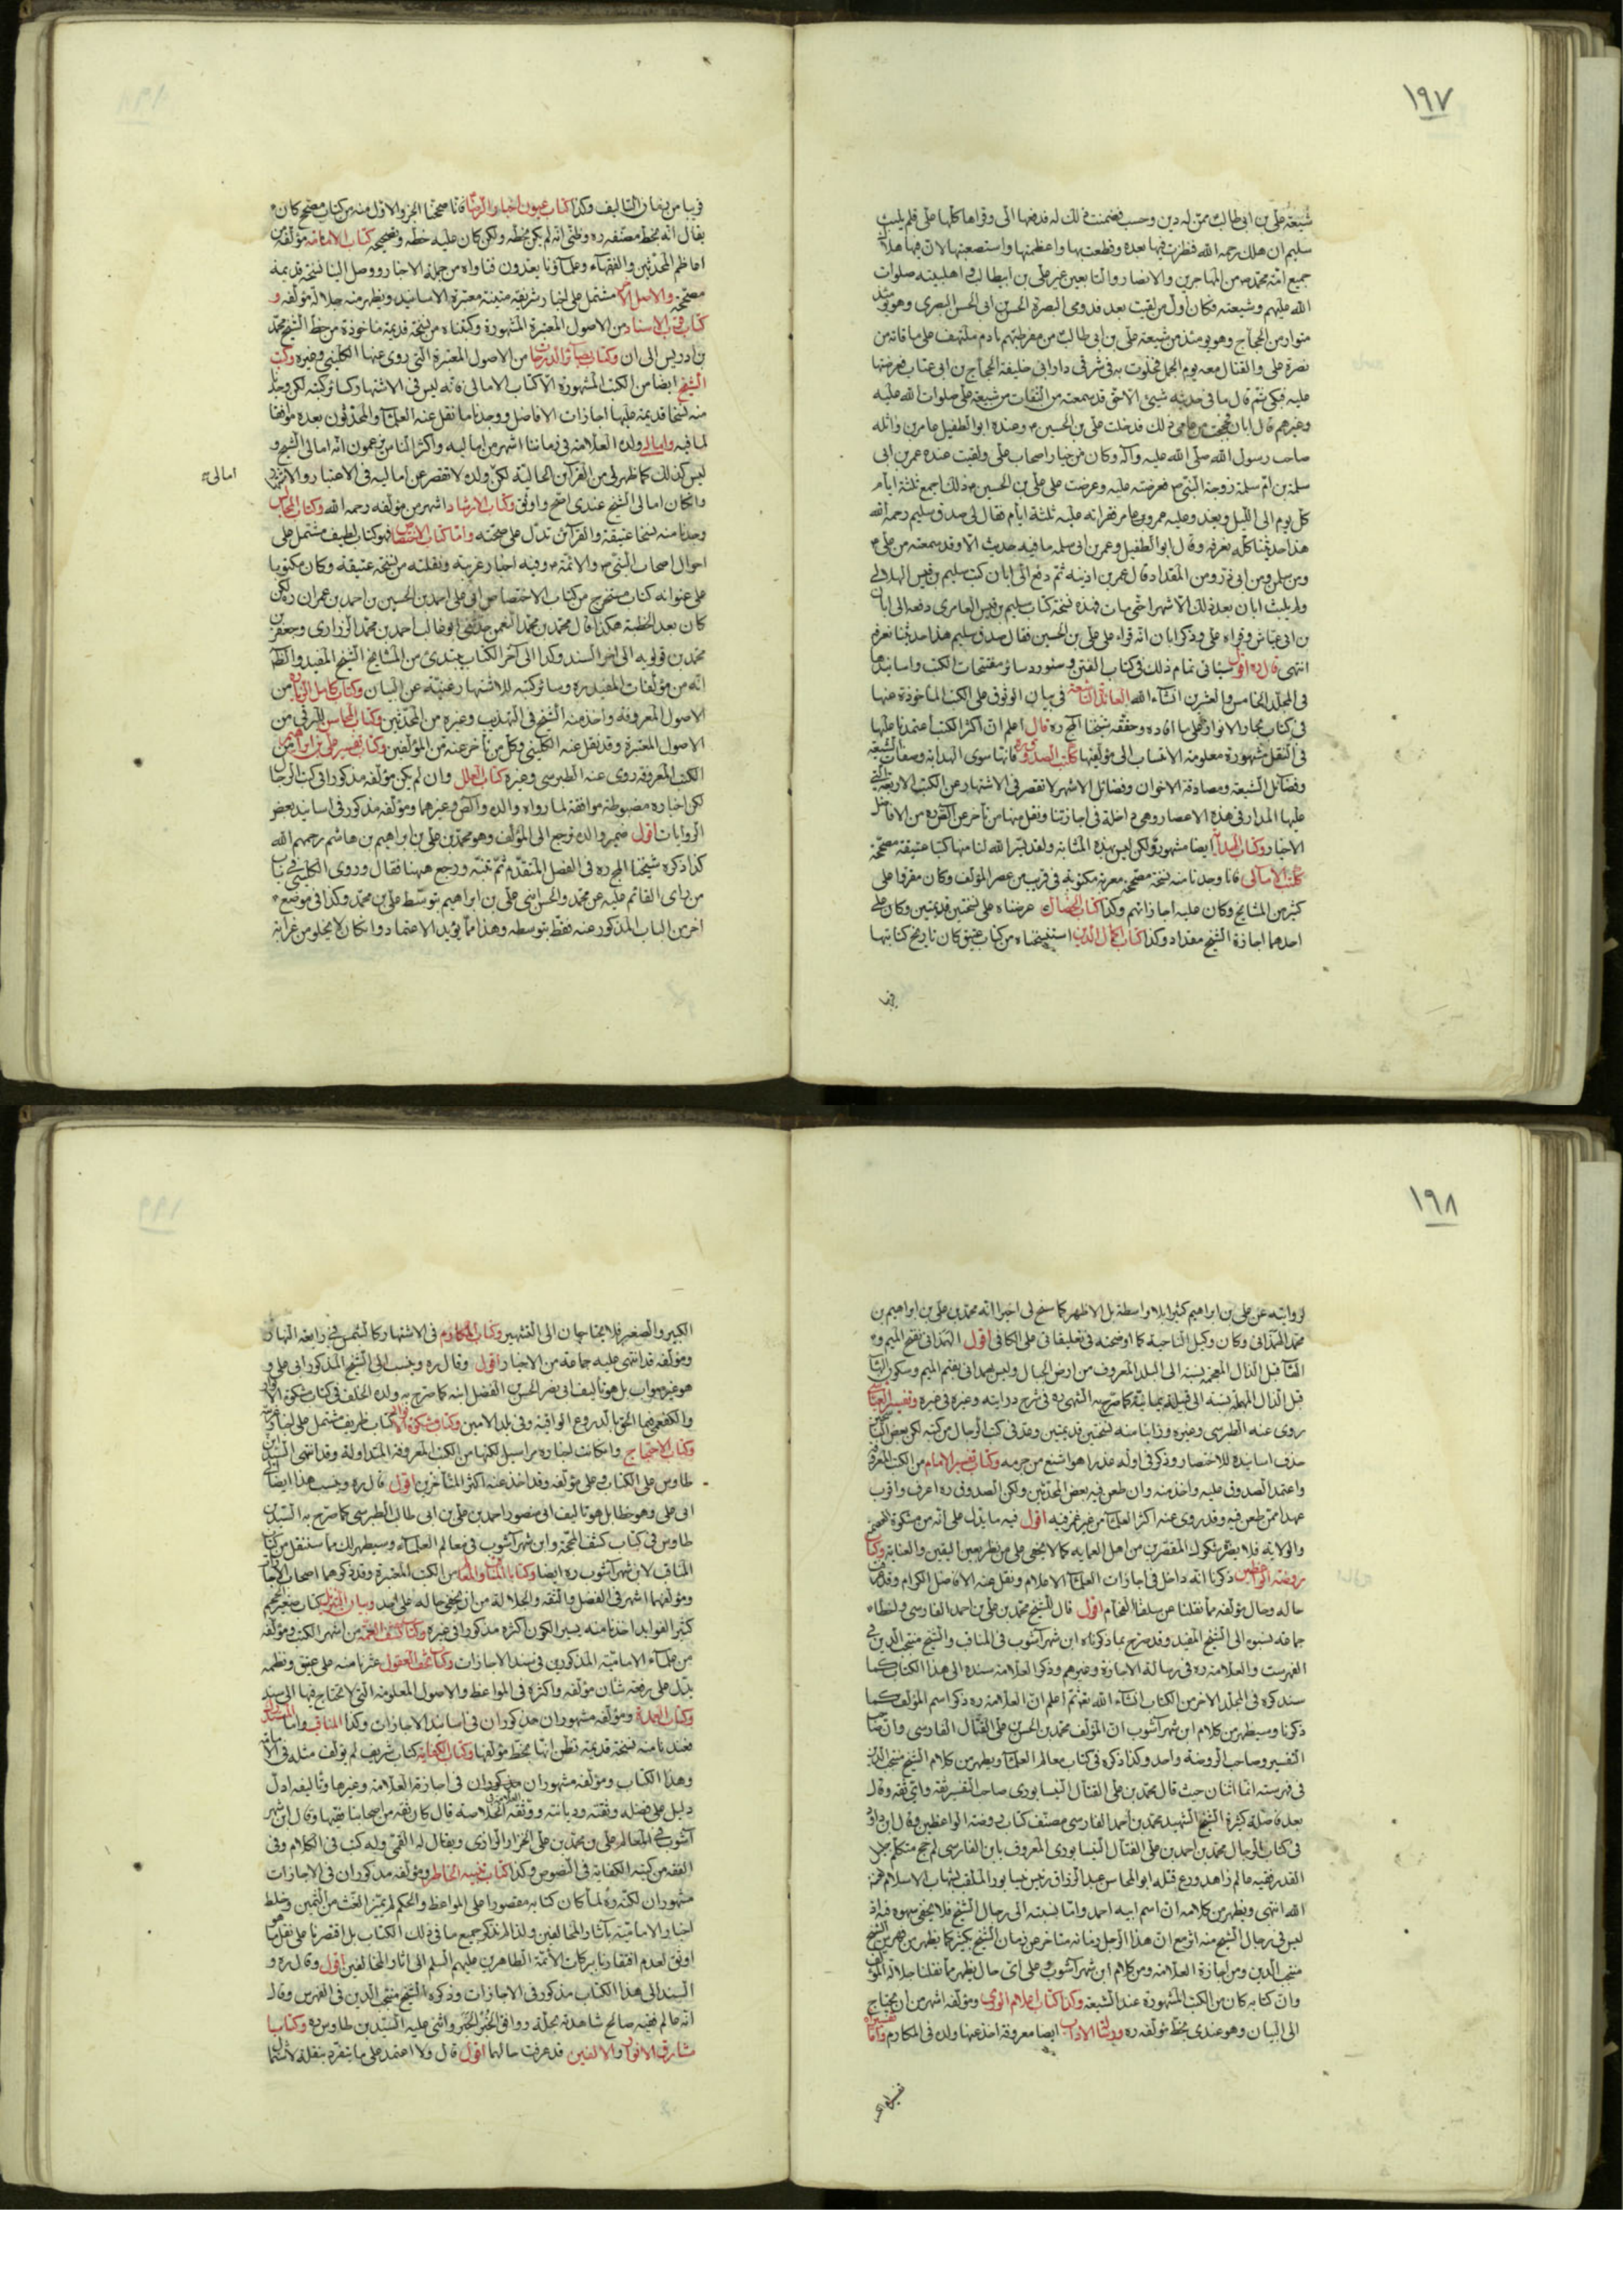 ١٩٧
شيعة علي بن ابي طالب ممّن له دين وحسب فضمنت ذلك له فدفعها الى وقراها كلّها علىّ فلم يلبث
سليم ان هلك رحمه الله فنظرت فيها بعده وقطعت بها واعظمتها واستصعبتها لان فيها هلاك
جميع امّة محمّد ص من المهاجرين والانصار والتابعين غير علي بن ابيطالب واهلبيته صلوات
الله عليهم وشيعته فكان اوّل من لقيت بعد قدومي البصرة الحسن بن ابى الحسن البصري وهو يومئذ
متوار من الحجاج وهو يومئذ من شيعة علي بن ابي طالب من مفرطيهم نادم متلهف على ما فاته من
نصرة علي والقتال معه يوم الجمل فخلوت به في شرقي دار ابي خليفة الحجاج بن ابي عتاب فعرضتها
عليه فبكى ثم قال ما في حديثه شيئ الا حق قد سمعته من الثقات من شيعة علي صلوات الله عليه
وغيرهم قال ابان فحججت من عامي ذلك فدخلت على علي بن الحسين ع وعنده ابو الطفيل عامر بن واثله
صاحب رسول الله صلّى الله عليه وآله وكان من خيار اصحاب علي ولقيت عنده عمر بن ابى
سلمة بن امّ سلمة زوجة النبيّ ص فعرضته عليه وعرضت على علي بن الحسين ع ذلك اجمع ثلثة ايّام
كلّ يوم الى اللّيل ويغدو عليه عمر وعامر فقراته عليه ثلثة ايام فقال لى صدق سليم رحمه الله
هذا حديثنا كلّه نعرفه وقال ابو الطفيل وعمر بن ابى سلمه ما فيه حديث الّا وقد سمعته من علي ع
ومن سلمان ومن ابى ذر ومن المقداد قال عمر بن اذينه ثم دفع الىّ ابان كتب سليم بن قيس الهلالي
ولم يلبث ابان بعد ذلك الّا شهرا حتى مات فهذه نسخة كتاب سليم بن قيس العامري دفعه الى ابان
بن ابى عيّاش وقراه علي وذكر ابان انه قراه على علي بن الحسين فقال صدق سليم هذا حديثنا نعرفه
انتهى قال ره اقول سياتى تمام ذلك في كتاب الفتن وسنورد سائر مفتتحات الكتب واسانيدها
في المجلّد الخامس والعشرين انشاء الله الفائدة التاسعة في بيان الوثوق على الكتب الماخوذة عنها
في كتاب بحار الانوار على ما افاده وحققه شيخنا المج ره قال اعلم ان اكثر الكتب اعتمدنا عليها
في النقل مشهورة معلومة الانتساب الى مؤلّفيها ككتب الصدوق ره فانها سوى الهداية وصفات الشيعة
وفضائل الشيعة ومصادقة الاخوان وفضائل الاشهر لا تقصر في الاشتهار عن الكتب الاربعة التي
عليها المدار في هذه الاعصار وهى داخلة في اجازتنا ونقل منها من تأخر عن الصّدوق من الافاضل
الاخيار وكتاب الهداية ايضا مشهور ولكن ليس بهذه المثابه ولقد يسّر الله لنا منها كتبا عتيقة مصحّحة
ككتاب الامالى فانا وجدنا منه نسخة مصحّحة معربة مكتوبة في قريب من عصر المؤلف وكان مقروا على
كثير من المشايخ وكان عليه اجازاتهم وكذا كتاب الخصال عرضناه على نسختين قديمتين وكان على
احدهما اجازة الشيخ مقداد وكذا كتاب اكمال الدّين استنسخناه من كتاب عتيق كان تاريخ كتابتها
قريبا
قريبا من زمان التاليف وكذا كتاب عيون اخبار الرّضا فانا صححنا الجزء الاوّل منه من كتاب مصحح كان
يقال انّه بخط مصنّفه ره وظنّى انه لم يكن بخطّه ولكن كان عليه خطّه وتصحيحه كتاب الامامة مؤلّفه من
اعاظم المحدّثين والفقهاء وعلماؤنا يعدّون فتاواه من جملة الاخبار ووصل الينا نسخة قديمة
مصححة والاصل الآخر مشتمل على اخبار شريفة متينة معتبرة الاسانيد ويظهر منه جلالة مؤلّفه و
كتاب قرب الاسناد من الاصول المعتبرة المشهورة وكتبناه من نسخة قديمة ماخوذة من خط الشيخ محمّد
بن ادريس الى ان وكتاب بصائر الدرجات من الاصول المعتبرة التي روى عنها الكلينى وغيره وكتب
الشيخ ايضا من الكتب المشهورة الّا كتاب الامالي فانه ليس في الاشتهار كسائر كتبه لكن وجدنا
منه نسخا قديمة عليها اجازات الافاضل ووجدنا ما نقل عنه العلماء والمحدّثون بعده موافقا
لما فيه وامالى ولده العلّامة في زماننا اشهر من اماليه واكثر الناس يزعمون انّه امالى الشيخ و
ليس كذلك كما ظهر لى من القرآئن الجاليّة لكن ولده لا تقصر عن اماليه في الاعتبار والاشتهار
امالى
وان كان امالى الشيخ عندى اصح واوثق وكتاب الارشاد اشهر من مؤلّفه رحمه الله وكتاب المجالس
وجدنا منه نسخا عتيقة والقرآئن تدلّ على صحّته وامّا كتاب الاختصاص فهو كتاب لطيف مشتمل على
احوال اصحاب النبي ص والائمة ع وفيه اخبار غريبة ونقلته من نسخة عتيقة وكان مكتوبا
على عنوانه كتاب مستخرج من كتاب الاختصاص لابي علي احمد بن الحسين بن احمد بن عمران ره لكن
كان بعد الخطبة هكذا قال محمّد بن محمّد النعمن حدثني ابو غالب احمد بن محمّد الزراري وجعفر بن
محمّد بن قولويه الى اخر السند وكذا الى آخر الكتاب يبتدئ من المشايخ الشيخ المفيد فالظاهر
انّه من مؤلّفات المفيد ره وسائر كتبه للاشتهار غنيّة عن البيان وكتاب كامل الزيارة من
الاصول المعروفة واخذ منه الشيخ في التهذيب وغيره من المحدّثين وكتاب المحاسن للبرقي من
الاصول المعتبرة وقد نقل عنه الكليني وكل من تأخر عنه من المؤلّفين وكتاب تفسير علي بن ابراهيم من
الكتب المعروفة روى عنه الطبرسي وغيره كتاب العلل وان لم يكن مؤلّفه مذكورا في كتب الرجال
لكن اخباره مضبوطة موافقة لما رواه والده والصّدوق وغيرهما ومؤلّفه مذكور في اسانيد بعض
الروايات اقول ضمير والده يرجع الى المؤلّف وهو محمّد بن علي بن ابراهيم بن هاشم رحمهم الله
كذا ذكره شيخنا المج ره في الفصل المتقدّم ثمّ تمّه ورجع ههنا فقال وروى الكلينى في باب
من راى القائم عليه عن محمّد والحسن ابني علي بن ابراهيم بتوسّط علي بن محمّد وكذا في موضع
اخر من الباب المذكور عنه فقط بتوسطه وهذا ممّا يؤيّد الاعتماد وان كان لا يخلو من غرابة
١٩٨
لروايته عن علي بن ابراهيم كثيرا بلا واسطة بل الاظهر كما سنح لى اخيرا انّه محمّد بن علي بن ابراهيم بن
محمّد الهمدانى وكان وكيل الناحية كما اوضحته في تعليقاتى على الكافي اقول الهمدانى بفتح الميم و
الهاء قبل الذال المعجمة نسبة الى البلد المعروف من ارض الجبال وليس همدانى بفتح الميم وسكون الهاء
قبل الدّال المهملة نسبة الى قبيلة يمانيّة كما صرّح به الشهيد ره في شرح درايته وغيره في غيره وتفسير العيّاشي
روى عنه الطبرسي وغيره وراينا منه نسختين قديمتين وعدّ في كتب الرجال من كتبه لكن بعض الناسخين
حذف اسانيده للاختصار وذكر في اوّله عذرا هو اشنع من جرمه وكتاب تفسير الامام من الكتب المعروفة
واعتمد الصدوق عليه واخذ منه وان طعن فيه بعض المحدّثين ولكن الصدوق ره اعرف واقرب
عهدا ممّن طعن فيه وقد روى عنه اكثر العلماء من غير غمز فيه اقول فيه ما يدلّ على انّه من مشكوة التعظيم
والولاية فلا يضرّه شكوك المقصّرين من اهل العماية كما لا يخفى على من نظر بعين اليقين والعناية وكتاب
روضة الواعظين ذكرنا انّه داخل في اجازات العلماء الاعلام ونقل عنه الافاضل الكرام وقد عرفت
حاله وحال مؤلّفه ممّا نقلنا عن سلفنا الفخام اقول قال للشيخ محمّد بن علي بن احمد الفارسي واخطاء
جماعة نسبوه الى الشيخ المفيد وقد صرّح بما ذكرناه ابن شهر آشوب في المناقب والشيخ منتجب الدين في
الفهرست والعلّامة ره في رسالة الاجازة وغيرهم وذكر العلّامة سنده الى هذا الكتاب كما
سنذكره في المجلّد الاخر من الكتاب انشاء الله تع ثمّ اعلم انّ العلّامة ره ذكر اسم المؤلف كما
ذكرنا وسيظهر من كلام ابن شهر آشوب انّ المؤلّف محمّد بن الحسن بن علي الفتّال الفارسى وان صاحب
التفسير وصاحب الروضة واحد وكذا ذكره في كتاب معالم العلماء ويظهر من كلام الشيخ منتجب الدّين
في فهرسته انّهما اثنان حيث قال محمّد بن علي الفتال النيسابوري صاحب التفسير ثقة واي ثقة وقال
بعد فاصلة كثيرة الشيخ الشهيد محمّد بن احمد الفارسي مصنّف كتاب روضة الواعظين وقال ابن داود
في كتاب الرجال محمّد بن احمد بن علي الفتال النيسابوري المعروف بابن الفارسي لم جخ متكلّم جليل
القدر فقيه عالم زاهد ورع قتله ابو المحاسن عبد الرزاق رئيس نيسابور الملقب بشهاب الاسلام لعنه
الله انتهى ويظهر من كلامه انّ اسم ابيه احمد وامّا نسبته الى رجال الشيخ فلا يخفى سهوه فيه اذ
ليس في رجال الشيخ منه اثر مع انّ هذا الرجل زمانه متاخر عن زمان الشيخ بكثير كما يظهر من فهرس الشيخ
منتجب الدّين ومن اجازة العلّامة ومن كلام ابن شهر آشوب وعلى اىّ حال يظهر ممّا نقلنا جلالة المؤلّف
وان كتابه كان من الكتب المشهورة عند الشيعة وكذا كتاب اعلام الورى ومؤلّفه اشهر من ان يحتاج
الى البيان وهو عندى بخطّ مؤلّفه ره ورسالة الاداب ايضا معروفة اخذ عنها ولده في المكارم وامّا تفسيراه
تفسيراه الكبير
الكبير والصغير فلا يحتاجان الى التشهير وكتاب المكارم في الاشتهار كالشمس في رابعة النهار
ومؤلّفه قد اثنى عليه جماعة من الاخيار اقول وقال ره وينسب الى الشيخ المذكور ابي علي و
هو غير صواب بل هو تاليف ابى نصر الحسن بن الفضل ابنه كما صرّح به ولده الخلف في كتاب مشكوة الانوار
والكفعمى فيما الحق بالدروع الواقية وفي بلد الامين وكتاب مشكوة الانوار كتاب ظريف مشتمل على اخبار غريبة
وكتاب الاحتجاج وان كانت اخباره مراسيل لكنها من الكتب المعروفة المتداولة وقد اثنى السيّد ابن
طاوس على الكتاب وعلى مؤلّفه وقد اخذ عنه اكثر المتأخّرين اقول قال ره وينسب هذا ايضا الى
ابى علي وهو خطا بل هو تاليف ابى منصور احمد بن علي بن ابى طالب الطبرسي كما صرّح به السيّد بن
طاوس في كتاب كشف المحجّة وابن شهر آشوب في معالم العلماء وسيظهر لك ممّا سننقل من كتاب
المناقب لابن شهر آشوب ره ايضا وكتابا المناقب والمعالم من الكتب المعتبرة وقد ذكرهما اصحاب الاجازات
ومؤلّفهما اشهر في الفضل والثقة والجلالة من ان يخفى حاله على احد وبيان التنزيل كتاب صغير الحجم
كثير الفوايد اخذنا منه يسيرا لكون اكثره مذكورا في غيره وكتاب كشف الغمّة من اشهر الكتب ومؤلّفه
من علماء الاماميّة المذكورين في سند الاجازات وكتاب تحف العقول عثرنا منه على عتيق ونظمه
يدّل على رفعة شان مؤلّفه واكثره في المواعظ والاصول المعلومة التى لا نحتاج فيها الى سند
وكتاب العمدة ومؤلّفه مشهوران مذكوران في اسانيد الاجازات وكذا المناقب وامّا المستدرك
فعندنا منه نسخة قديمة نظن انّها بخط مؤلّفها وكتاب الكفاية كتاب شريف لم يؤلّف مثله في الامامة
وهذا الكتاب ومؤلّفه مشهوران مذكوران في اجازة العلّامة وغيرها وتاليفه ادلّ
دليل على فضله وثقته وديانته ووثّقه العلّامة في الخلاصة قال كان ثقة من اصحابنا فقيها وقال ابن شهر
آشوب في المعالم علي بن محمّد بن علي الخزاز الرازى ويقال له القمّي وله كتب في الكلام وفي
الفقه من كتبه الكفاية في النّصوص وكذا كتاب تنبيه الخاطر ومؤلّفه مذكوران في الاجازات
مشهوران لكنّه ره لما كان كتابه مقصورا على المواعظ والحكم لم يميّز الغث من الثمين وخلط
اخبار الاماميّة بآثار المخالفين ولذا لم نذكر جميع ما في ذلك الكتاب بل اقتصرنا على نقل ما هو
اوثق لعدم افتقارنا ببركات الائمّة الطاهرين عليهم السلم الى اثار المخالفين اقول وقال ره و
السند الى هذا الكتاب مذكور في الاجازات وذكره الشيخ منتجب الدّين في الفهرس وقال
انّه عالم فقيه صالح شاهدته بحلّة ووافق الخُبر الخَبر واثنى عليه السيّد بن طاوس ره وكتابا
مشارق الانوار والالفين قد عرفت حالهما اقول قال ولا اعتمد على ما يتفرّد بنقله لاشتمال